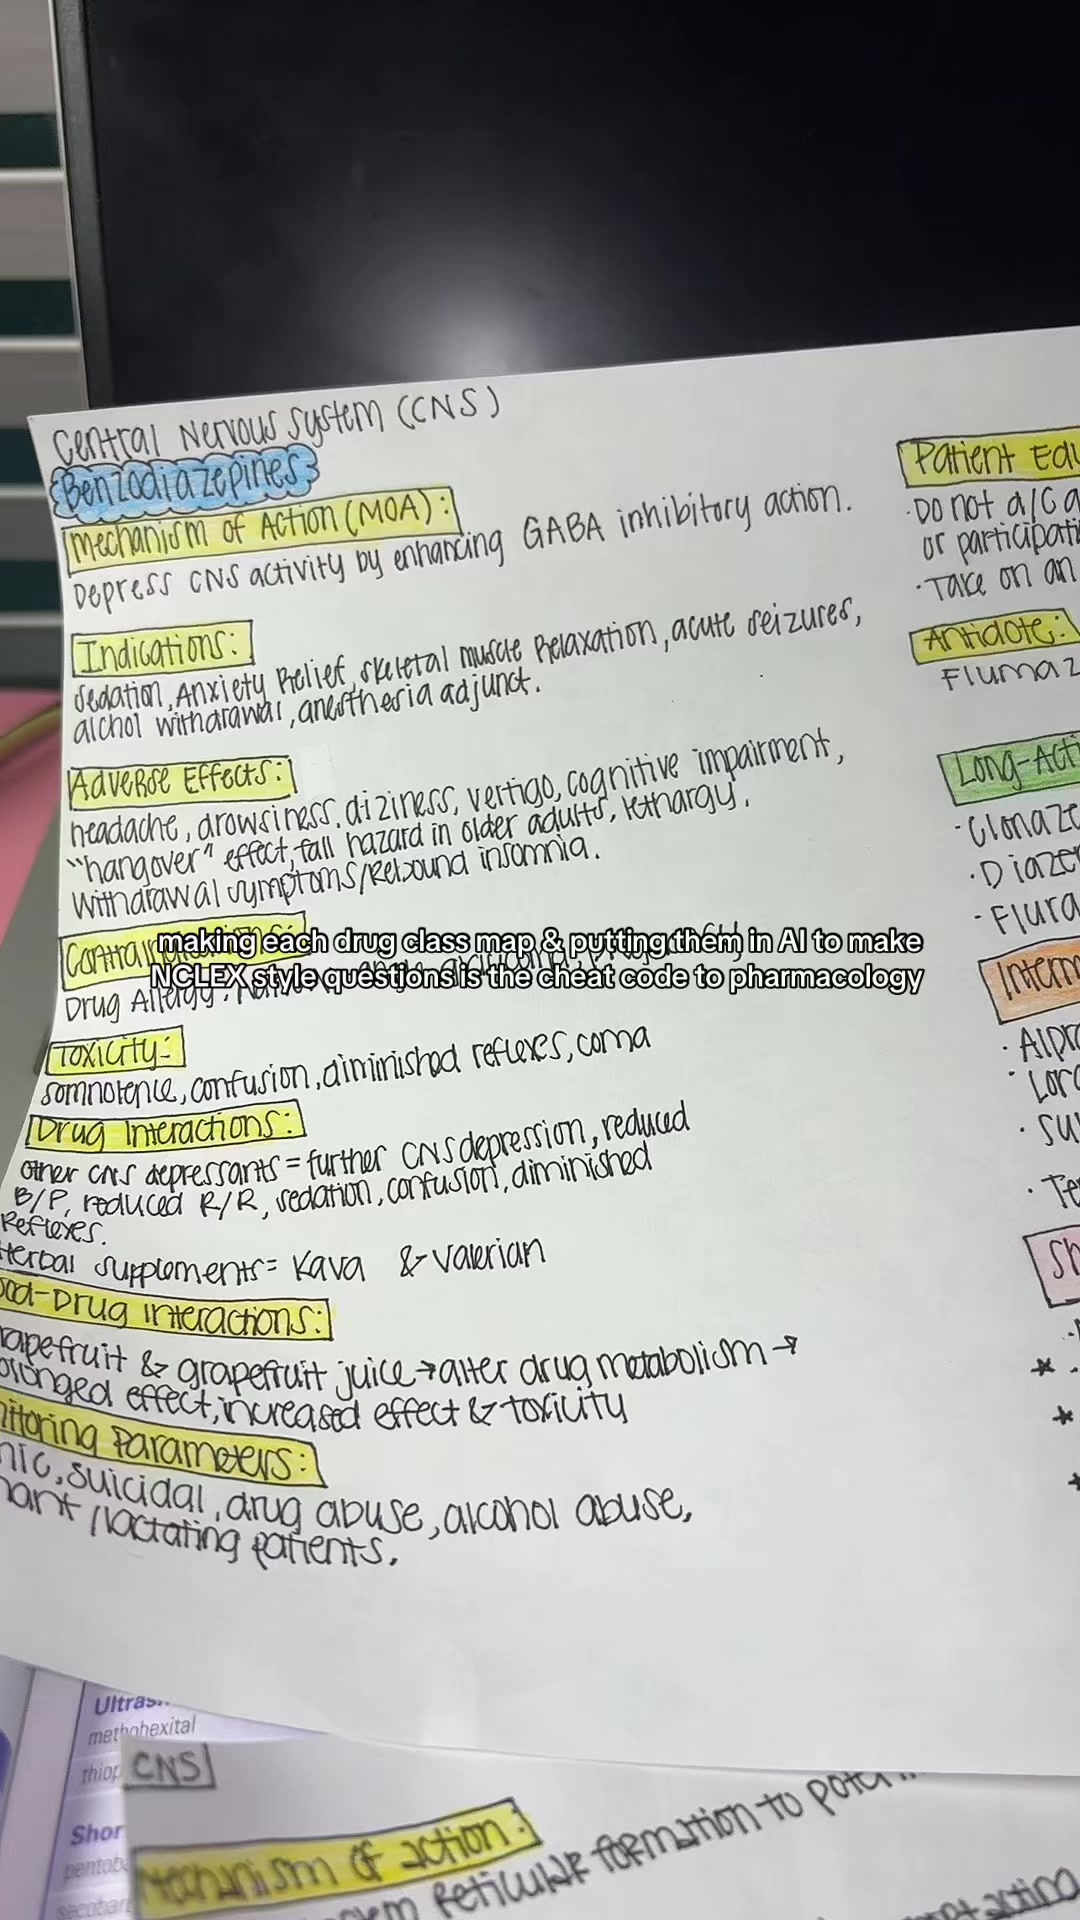 Central Nervous System (CNS)
Benzodiazepines
Mechanism of Action (MOA):
Depress CNS activity by enhancing GABA inhibitory action.
Indications:
sedation, Anxiety Relief, skeletal muscle Relaxation, acute seizures,
alchol withdrawal, anesthesia adjunct.
Adverse Effects:
headache, drowsiness, diziness, vertigo, cognitive impairment,
"hangover" effect, fall hazard in older adults, lethargy.
Withdrawal symptoms/Rebound insomnia.
making each drug class map & putting them in AI to make
NCLEX style questions is the cheat code to pharmacology
Drug Allergy,
Toxicity:
somnolence, confusion, diminished reflexes, coma
Drug Interactions:
other CNS depressants = further CNS depression, reduced
B/P, reduced R/R, sedation, confusion, diminished
Reflexes.
Herbal supplements = Kava & Valerian
ood-Drug Interactions:
rapefruit & grapefruit juice → alter drug metabolism →
olonged effect, increased effect & toxicity
nitoring Parameters:
nic, suicidal, drug abuse, alcohol abuse,
nant / lactating patients.
Patient Edu
· Do not d/c a
or participati
· Take on an
Antidote:
Flumaz
Long-Acti
· Clonaze
· Diazep
· Flura
Interm
· Alpr
· Lor
· Te
Sh
Ultras
methohexital
thiop
Shor
pentob
secobar
CNS
Mechanism of action:
reticular formation to
acting